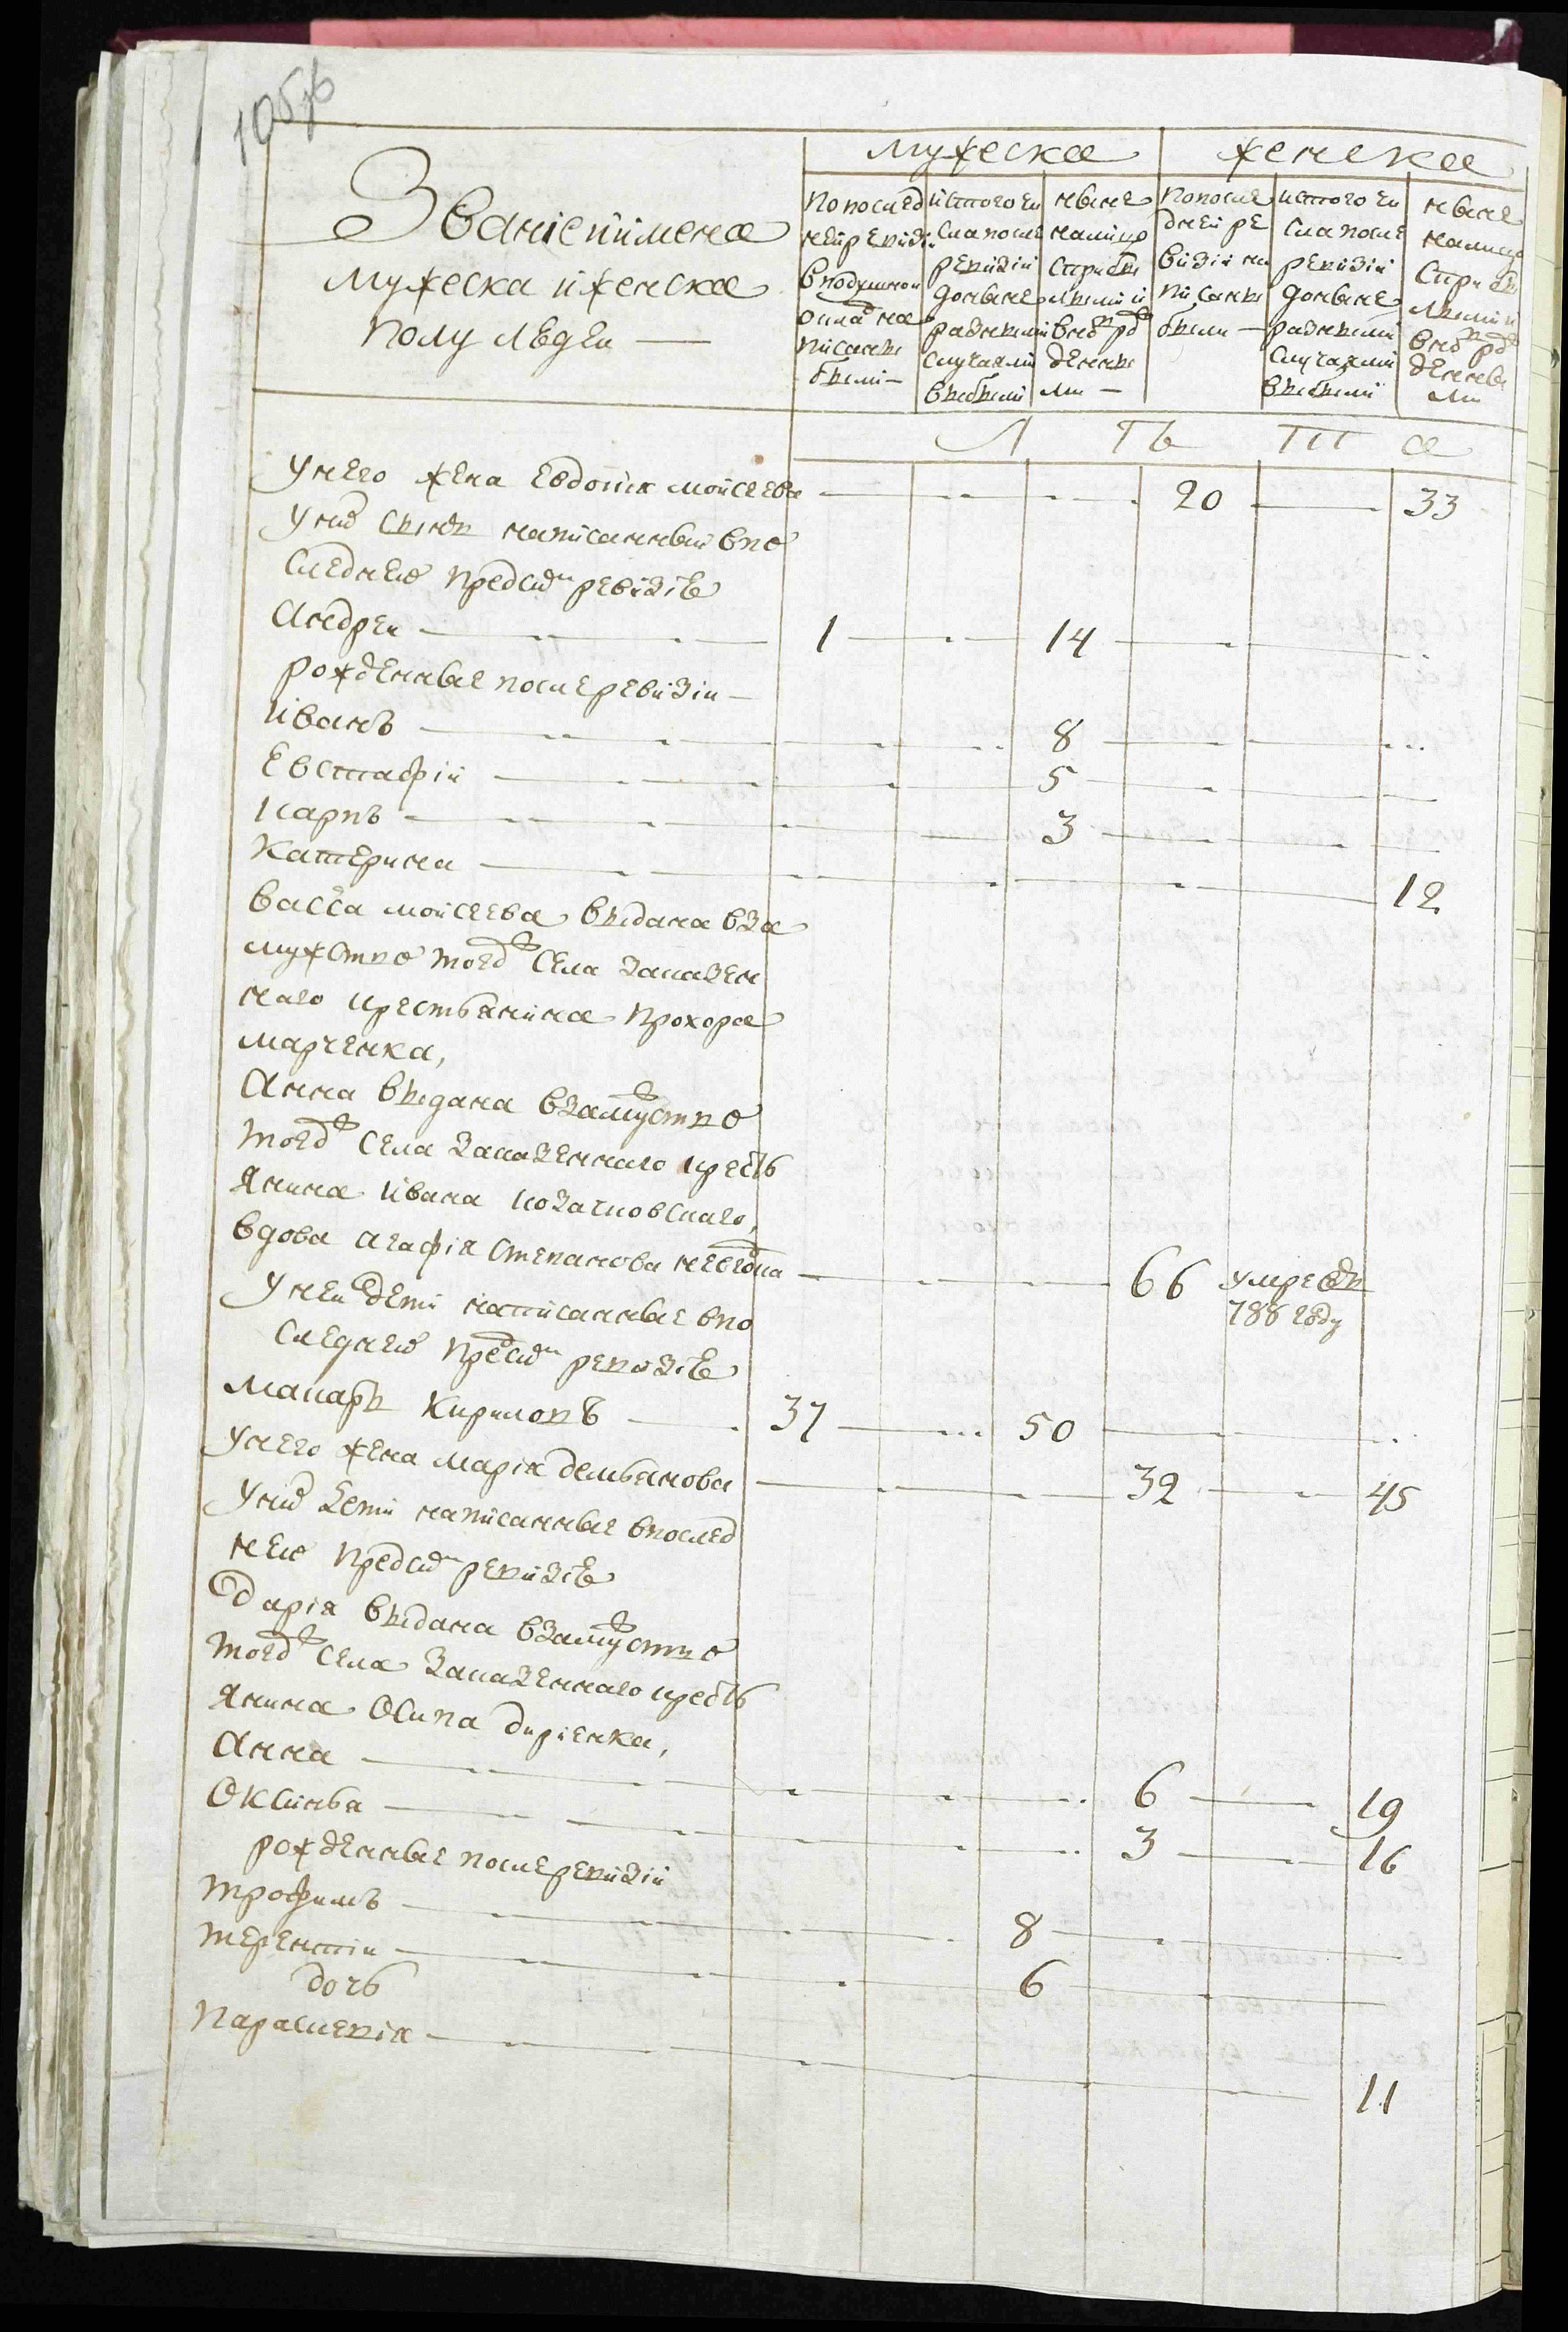 105об
Мужеска
Женска
Званіе и имена
мужеска и женска
полу людей
по послед
ней ревизіи
в подушной
оклад на
писанны
были
и того чи
сла после
ревизіи
до ныне
разными
случаями
выбыли
ныне
на лицо
с прибы
лыми и
вновь рож
денны
ми
по после
дней ре
визіи на
писанны
были
и того чи
сла после
ревизіи
до ныне
разными
случаями
выбыли
ныне
на лицо
с прибы
лыми и
вновь рож
денны
ми
Л Ѣ Т а
У него жена Евдокія Моисеева 20 33
У них сынъ написанный в по
следней пред сим ревизіе
Андрей 1 14
рожденные после ревизіи
Иванъ 8
Евстафій 5
Карпъ 3
Катерина 12
Васса Моисеева выдана в за
мужство того ж села казен
наго крестьянина Прохора
Марченка,
Анна выдана в замужство
того ж села казеннаго кресть
янина Ивана Козачковскаго,
Вдова Агафія Степанова 66 умре въ
788 году
У ней дети написанные в по
следней пред сим ревизіе
Макаръ Кириловъ 37 50
У него жена Марія Демьянова 32 45
У них дети написанные в послед
ней пред сим ревизіе
Дарія выдана в замужство
того ж села казеннаго кресть
янина Осипа
Анна 6 19
Оксинья 3 16
рожденные после ревизіи
Трофимъ 8
Терентій 6
дочь
Параскевія 11